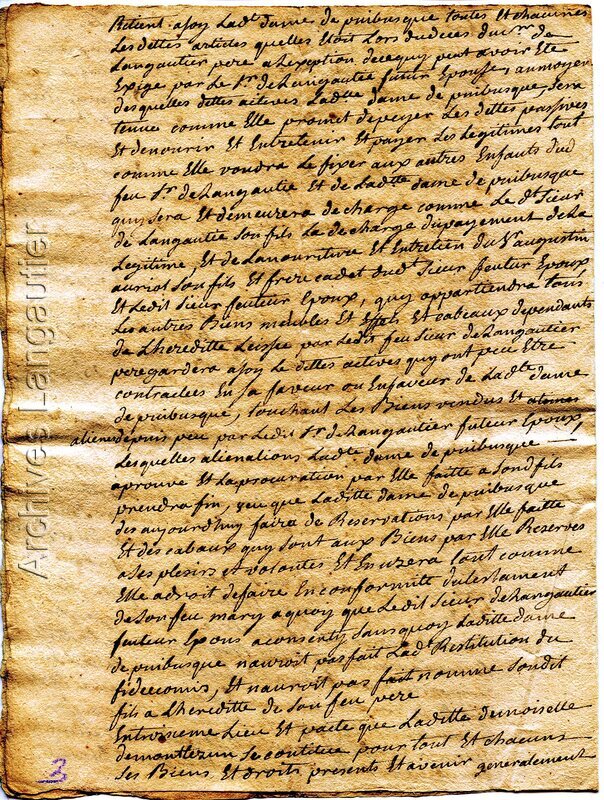 Retient a soy Lad.te dame de puibusque toutes Et chacunes
Les dettes actives quelles Etoit Lors du deces du S.r de
Langautier pere a Lexeption de ce quy peut avoir Ete
Exigé par Le S.r de Langautié futur Epouse, au moyen
desquelles dettes actives Lad.tte dame de puibusque, sera
tenue comme Elle promet de payer Les dettes passives
Et de nourir et Entretenir Et payer Les Legitimes tout
comme Elle voudra Le fixer aux autres Enfants dud
feu S.r de Langautié Et de Lad.tte dame de puibusque
quy sera Et demeurera de charge comme Le d.t Sieur
de Langautié Son fils La de charge du payement de La
Legitime, Et de La nouriture Et Entretien du S.r augustin
auriol Son fils Et frere cadet dud.t Sieur feutur Epoux
Et Ledit Sieur feuteur Epoux, quy appartiendra tous
Les autres Biens meubles Et Effets Et cabeaux dependants
de Lheredité Leissée par Ledit feu Sieur de Langautier
pere gardera a soy Le dettes actives quy ont peu Etre
contractées En sa faveur ou En faveur de Lad.te dame
de puibusque, touchant Les Biens vendus Et
alienes depuis peu par Ledit S.r de Langautier futeur Epoux,
Lesquelles alienations Lad.te dame de puibusque
aprouve Et La procuration par Elle faitte a Sond fils
prendra fin, veu que Laditte dame de puibusque
des aujourdhuy faire de Reservations par Elle faitte
Et des cabaux quy sont aux Biens par Elle Reservés
a ses plesirs et volontes Et En uzera tout comme
Elle a droit de faire En conformitté du testament
de Son feu mary a quoy que Ledit Sieur de Langautier
feuteur Epous a consenty Sans quoy Laditte dame
de puibusque nauroit pas fait Lad.te Restitution du
fideecomis, Et nauroit pas fait nomme Sondit
fils a Lheredité de Son feu pere
En troizieme Lieu Et pacte que Laditte demoiselle
de montlezun Se contitue pour tout Et chacuns
Ses Biens Et droits presents Et avenir generalement
Archives Langautier
3